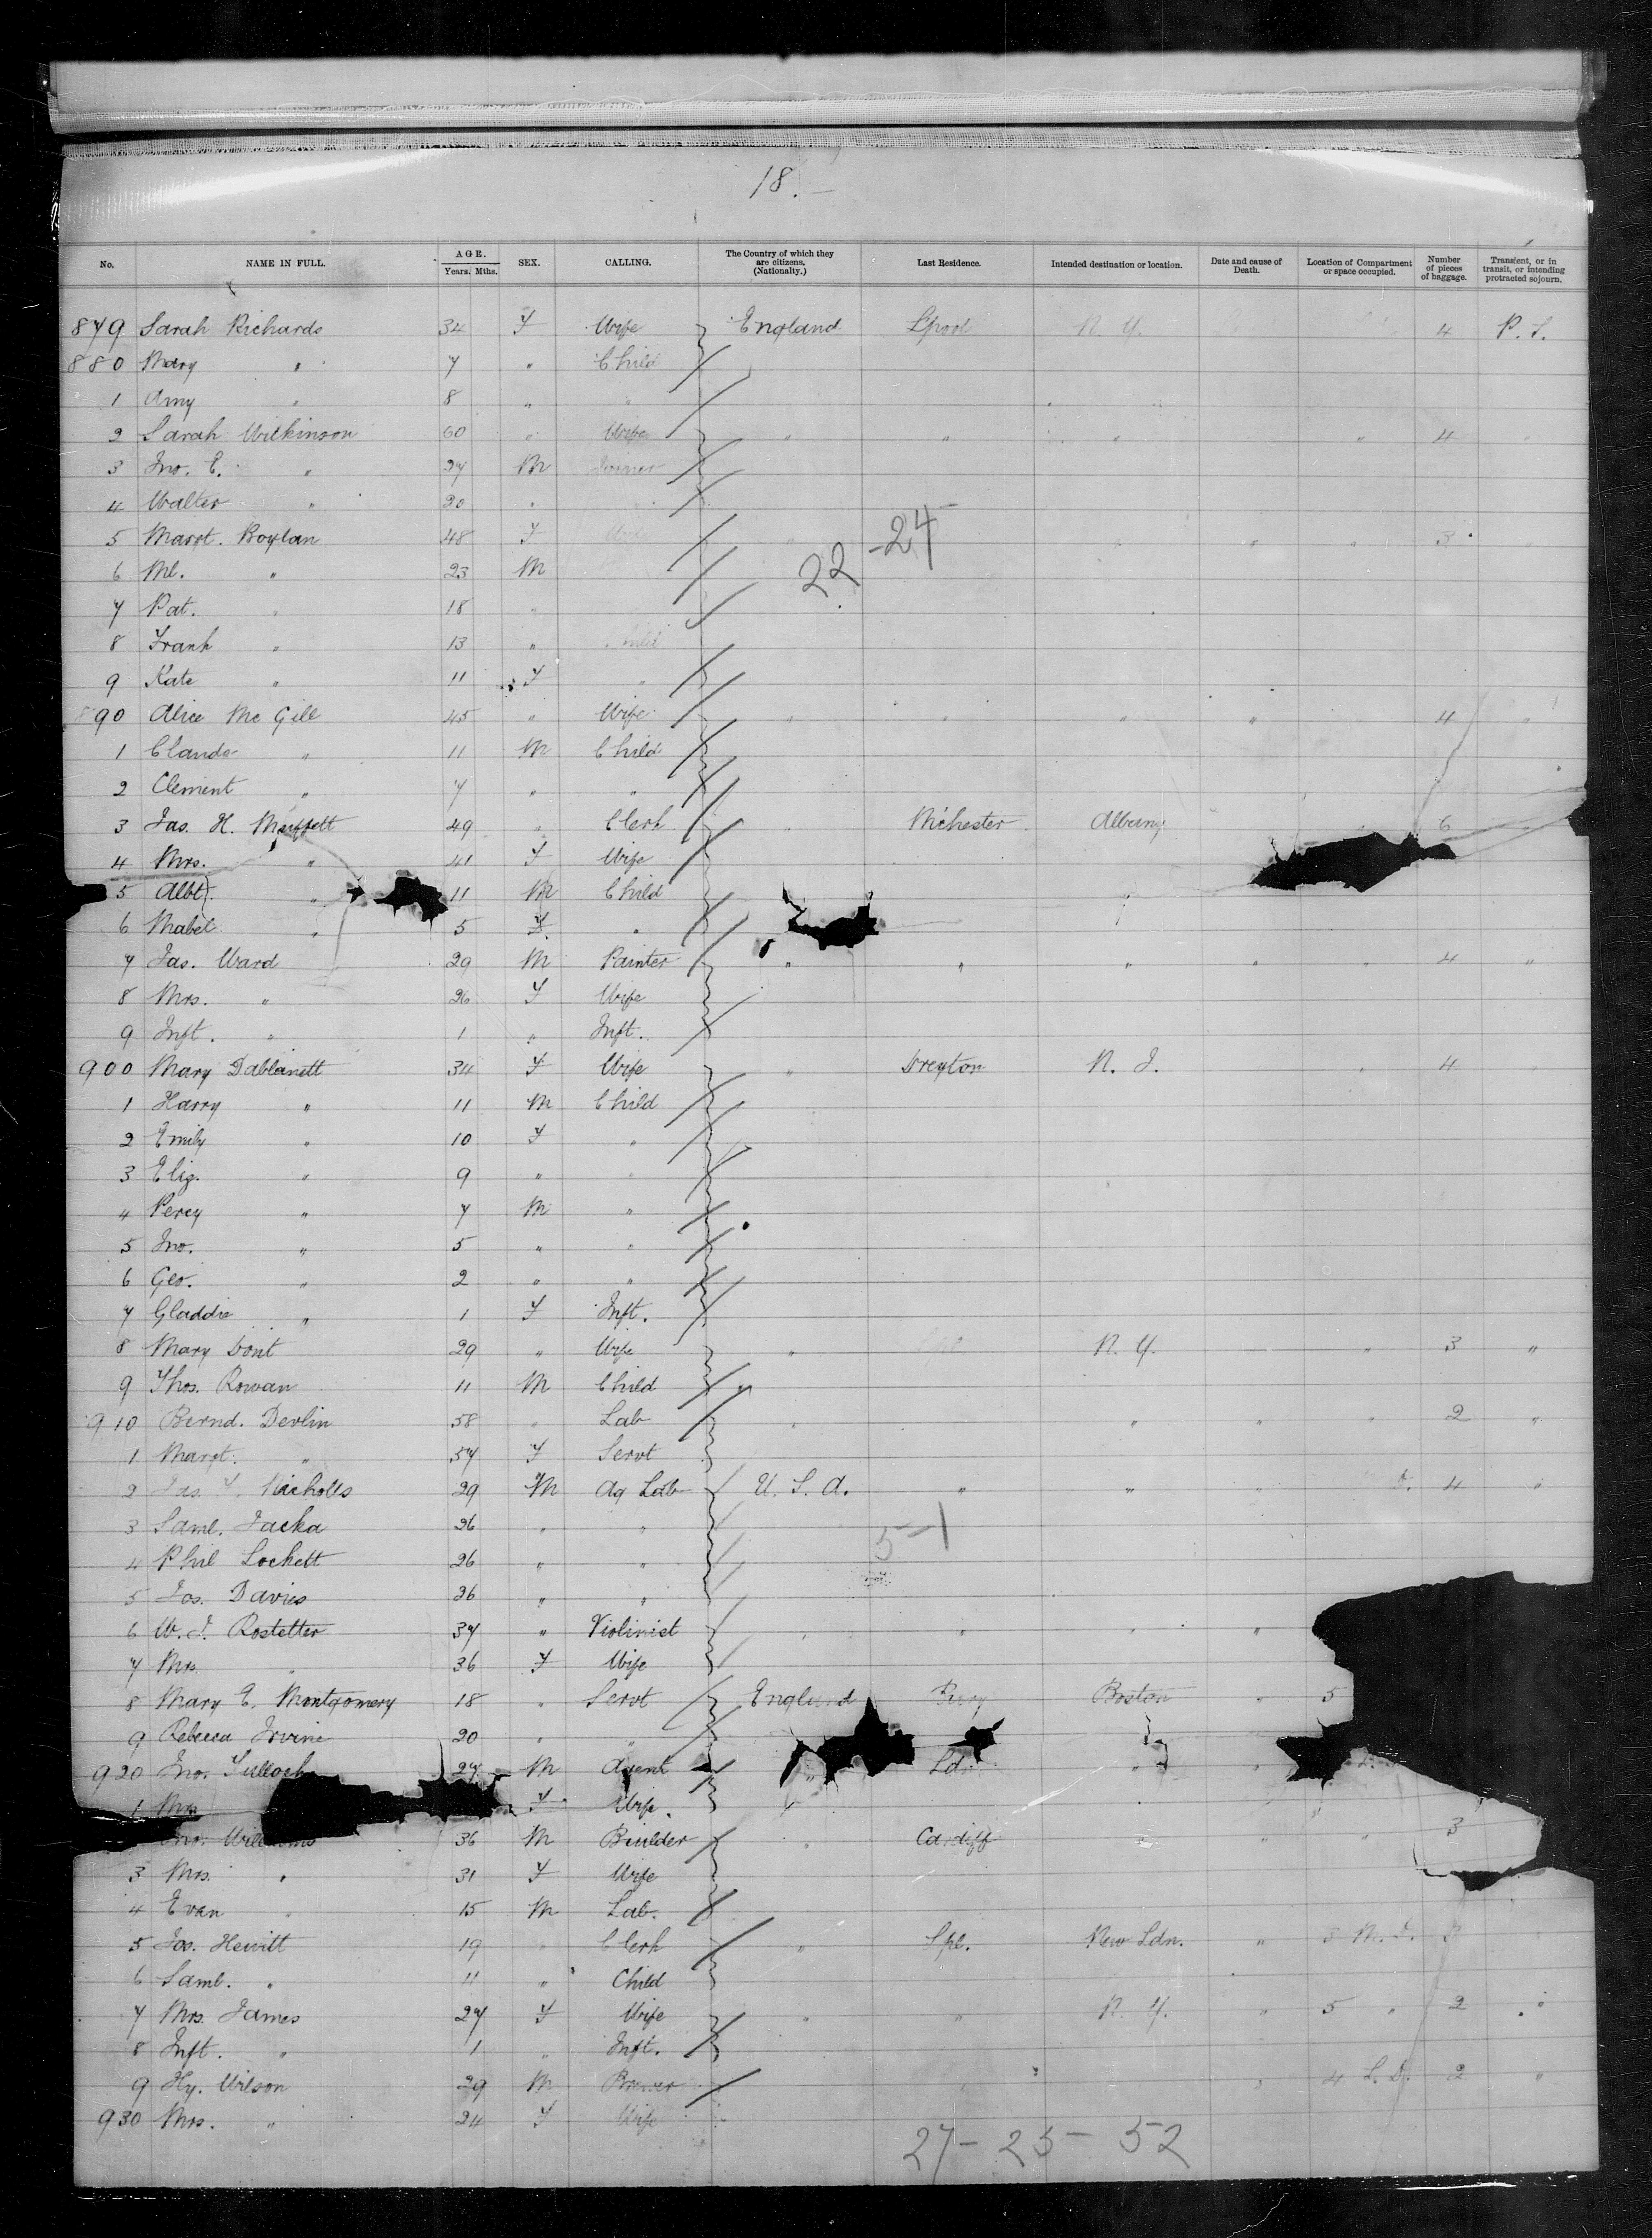 18.
No. NAME IN FULL. AGE. Years. Mths. SEX. CALLING. The Country of which they are citizens. (Nationalty.) Last Residence. Intended destination or location. Date and cause of Death. Location of Compartment or space occupied. Number of pieces of baggage. Transient, or in transit, or intending protracted sojourn.
879 Sarah Richards 34 F Wife England Lpool N. Y. 4 P. S.
880 Mary " 7 " Child
1 Amy " 8 " "
2 Sarah Wilkinson 60 " Wife " " " " 4 "
3 Jno. E. " 27 M Joiner
4 Walter " 20 "
5 Margt. Boylan 48 F " " " 3 "
22 - 24
6 Ml. " 23 M
7 Pat. " 18 "
8 Frank " 13 " Child
9 Kate " 11 F "
890 Alice Mc Gill 45 " Wife " " " " 4 "
1 Claude " 11 M Child
2 Clement " 7 " "
3 Jas. H. 49 " Clerk " M'chester Albany 6 "
4 Mrs. " 41 F Wife
5 Albt. " 11 M Child
6 Mabel " 5 F "
7 Jas. Ward 29 M Painter " " " " " 4 "
8 Mrs. " 26 F Wife
9 Inft. " 1 " Inft.
900 Mary 34 F Wife " N. J. " 4 "
1 Harry " 11 M Child
2 Emily " 10 F "
3 Eliz. " 9 " "
4 Percy " 7 M "
5 Jno. " 5 " "
6 Geo. " 2 " "
7 Gladdis " 1 F Inft.
8 Mary 29 " Wife " N. Y. " 3 "
9 Thos. Rowan 11 M Child
910 Bernd. Devlin 58 " Lab " " " " 2 "
1 Margt. " 57 F Servt
2 Jas. Nicholls 29 M Ag Lab U. S. A. " " " 4 "
3 Saml. Jacka 26 " "
5-1
4 Phil Lockett 26 " "
5 Jos. Davies 26 " "
6 W. J. Rostetter 37 " Violinist " " " "
7 Mrs. " 36 F Wife
8 Mary E. Montgomery 18 " Servt England Bury Boston " 5
9 Rebecca Irvine 20 " "
920 Jno. Tulloch 27 M Agent " Ldn "
1 Mrs F Wife
Jno. Williams 36 M Builder " Cardiff " " " 3
3 Mrs. " 31 F Wife
4 Evan " 15 M Lab.
5 Jos. Hewitt 19 " Clerk " Lpl. New Ldn. "
6 Saml. " 11 " Child
7 Mrs. James 27 F Wife " " N. Y. " 5 " 2 "
8 Inft. " 1 " Inft.
9 Hy. Wilson 29 M 4 2 "
930 Mrs. " 24 F Wife
27- 25- 52